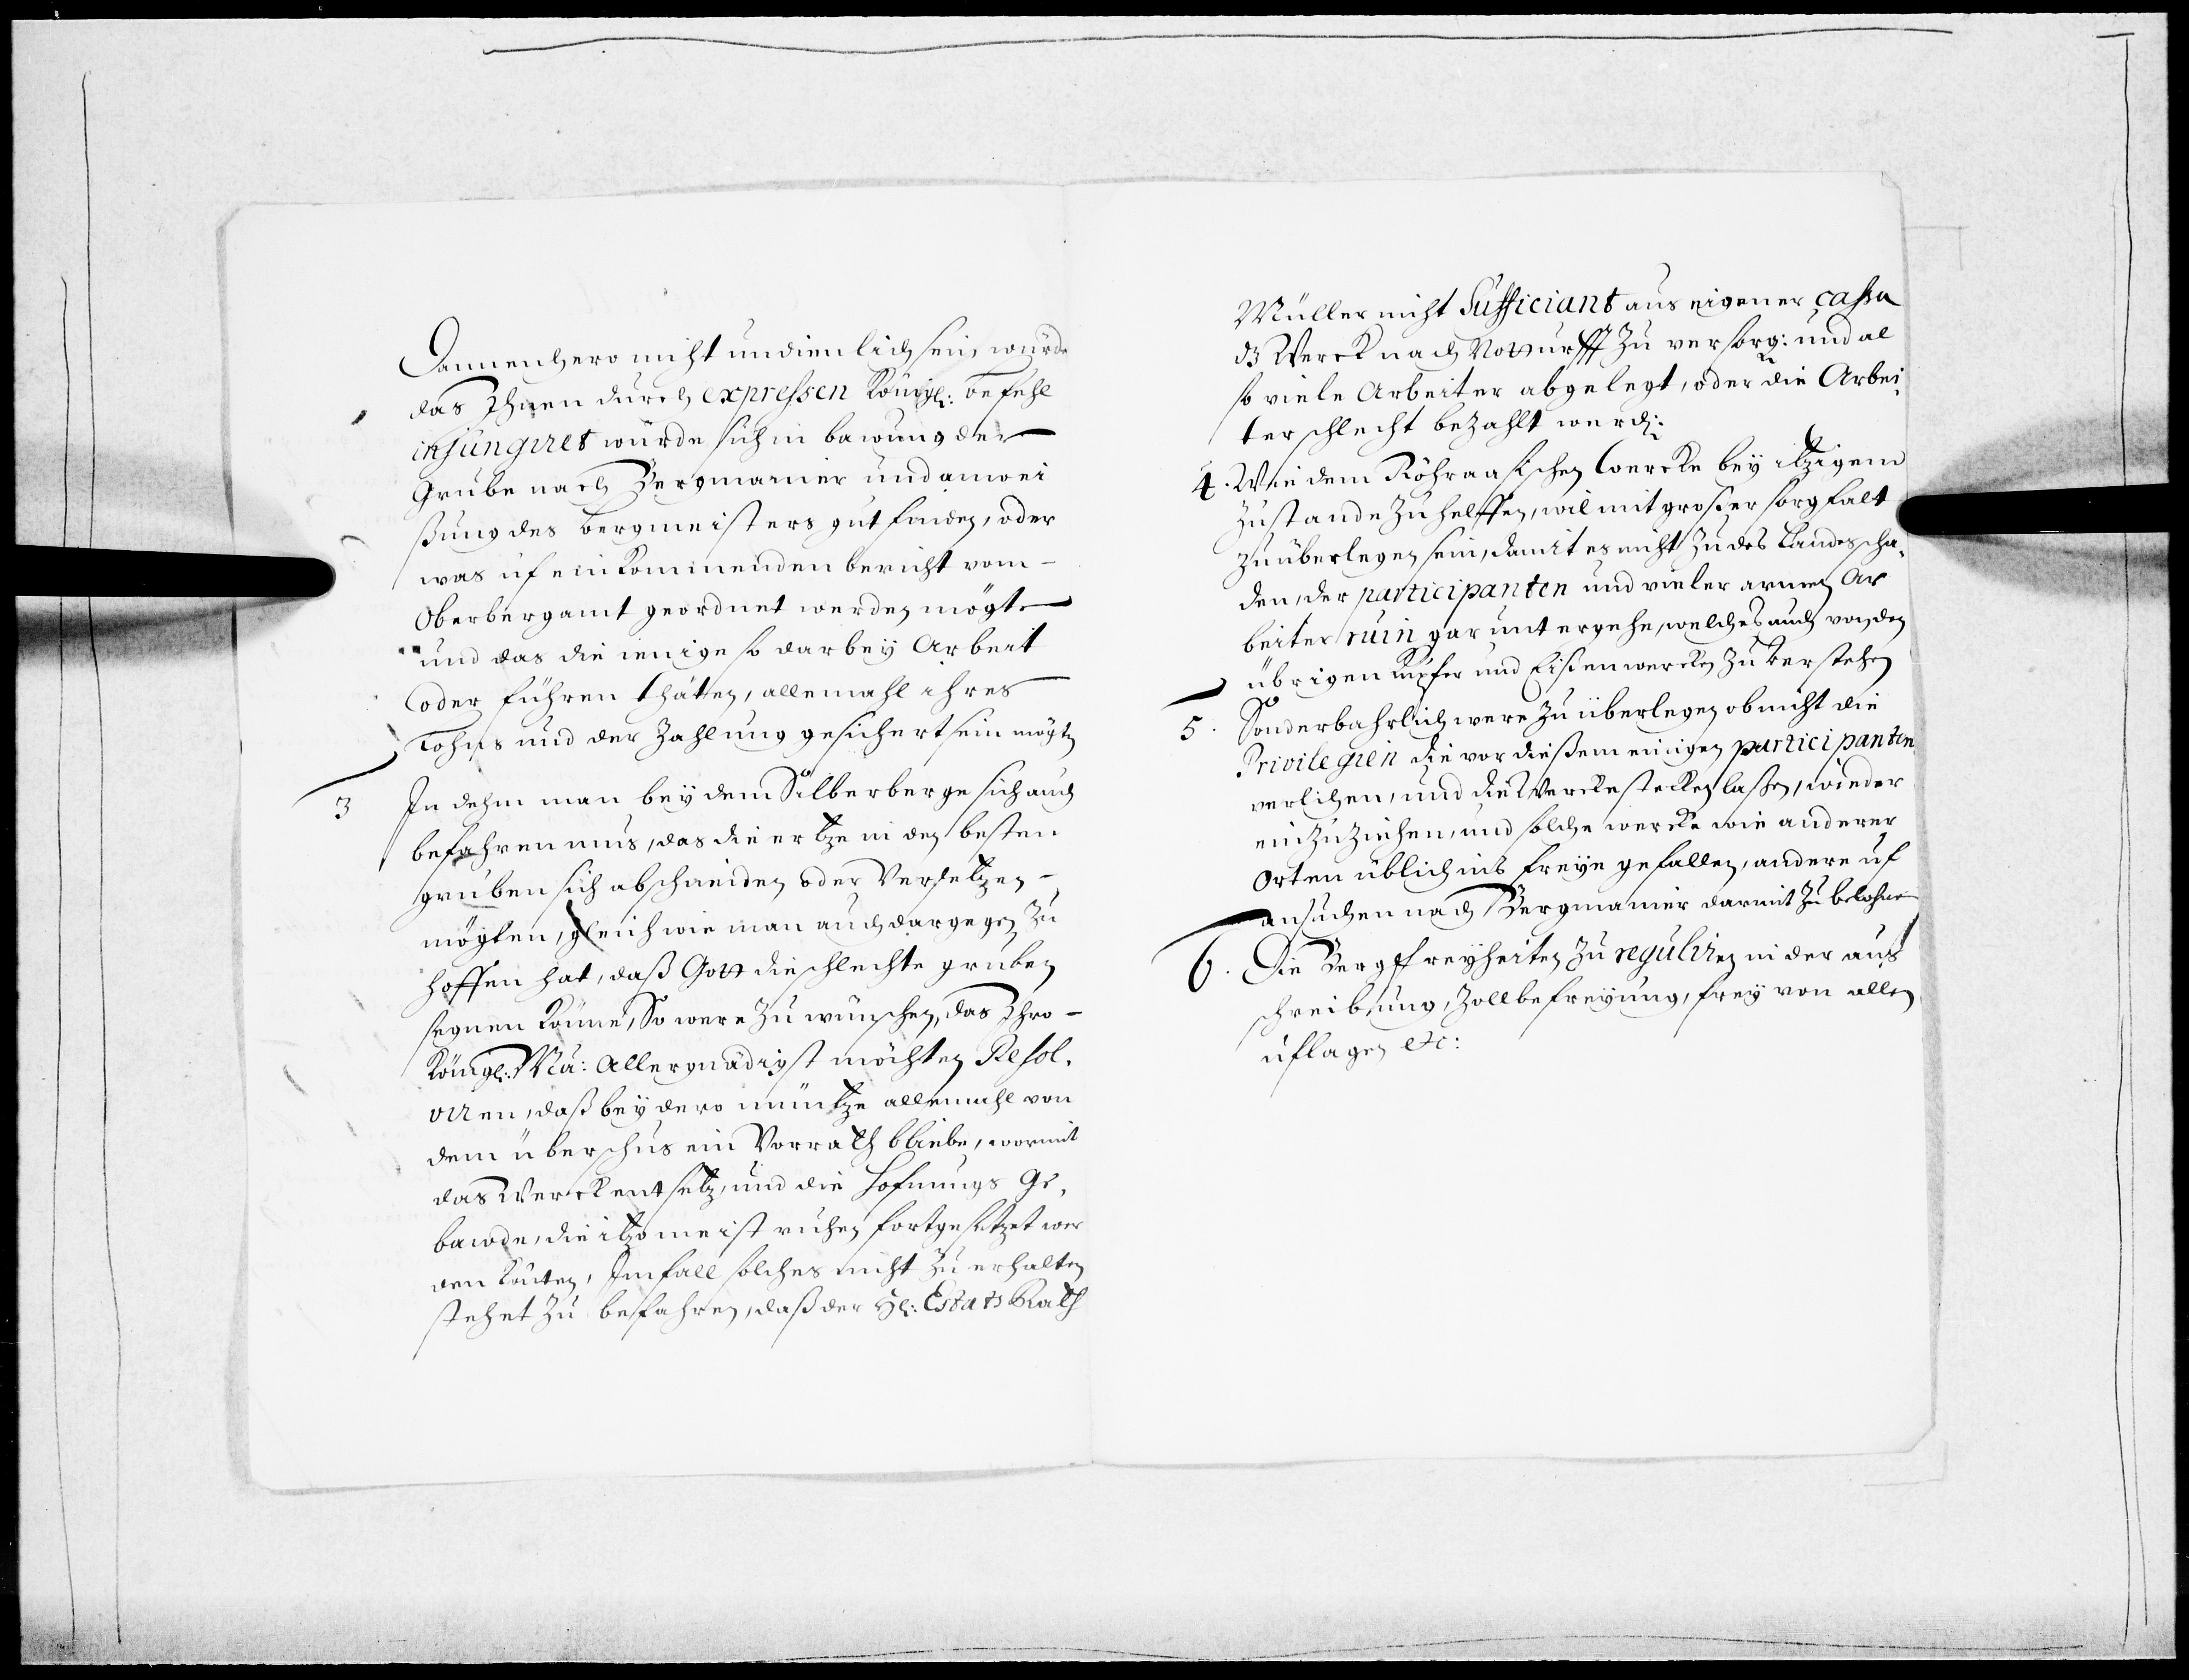 Dannenhero nicht undienlich sein würde
das Ihnen durch expressen Königl: befehl
injungiret würde sich in bawung der
Grube nach Bergmanier und anwei
ßung des bergmeisters gut finden, oder
was uf einkommenden bericht vom
Oberbergamt geordnet werden mögte
und das die ienige so darbey Arbeit
oder führen thäten, allemahl ihres
Lohns und der Zahlung gesichert sein mögten
3 In dehm man bey dem Silberberge sich auch
befahren mus, das die ertze in den besten
gruben sich abschneiden oder Versetzen
mögten, gleich wie man auch dargegen zu
hoffen hat, daß Gott die schlechte gruben
segnen könne, So were zu wünschen, das Ihro
Königl: Ma: Allergnädigst möchten Resol-
viren, daß bey dero müntze allemahl von
dem überschus ein Vorrath bliebe, wormit
das Werck entsetz, und die Hofnungs Ge-
bawde, die itzo meist ruhen fortgesetzet wer
den könten, Imfall solches nicht zu erhalten
stehet zu befahren, daß der H: Estats Rath
Müller nicht Sufficiant aus eigener cassa
dz Werck nach Notturfft zu versorg: und al
so viele Arbeiter abgelegt, oder die Arbei-
ter schlecht bezahlt werd:
4. Wie dem Röhraasischen Wercke bey itzigem
zustande zu helffen, wil mit großer sorgfalt
zu überlegen sein, damit es nicht zu des Landes scha-
den, der participanten und vieler armen Ar
beiter ruin gar untergehe, welches auch von den
übrigen Kupfer und Eisenwercken zu verstehen
5. Sonderbahrlich were zu überlegen ob nicht die
Privilegien die vor dießem einigen participanten
verliehen, und die Wercke stecken laßen, wieder
einzuziehen, und solche wercke wie anderer
Orten üblich ins freye gefallen, andere uf
ansuchen nach Bergmanier darmit zu belehnen
6. Die Bergffreyheiten zu reguliren in der aus
schreibung, Zollbefreyung, frey von allen
uflagen etc: